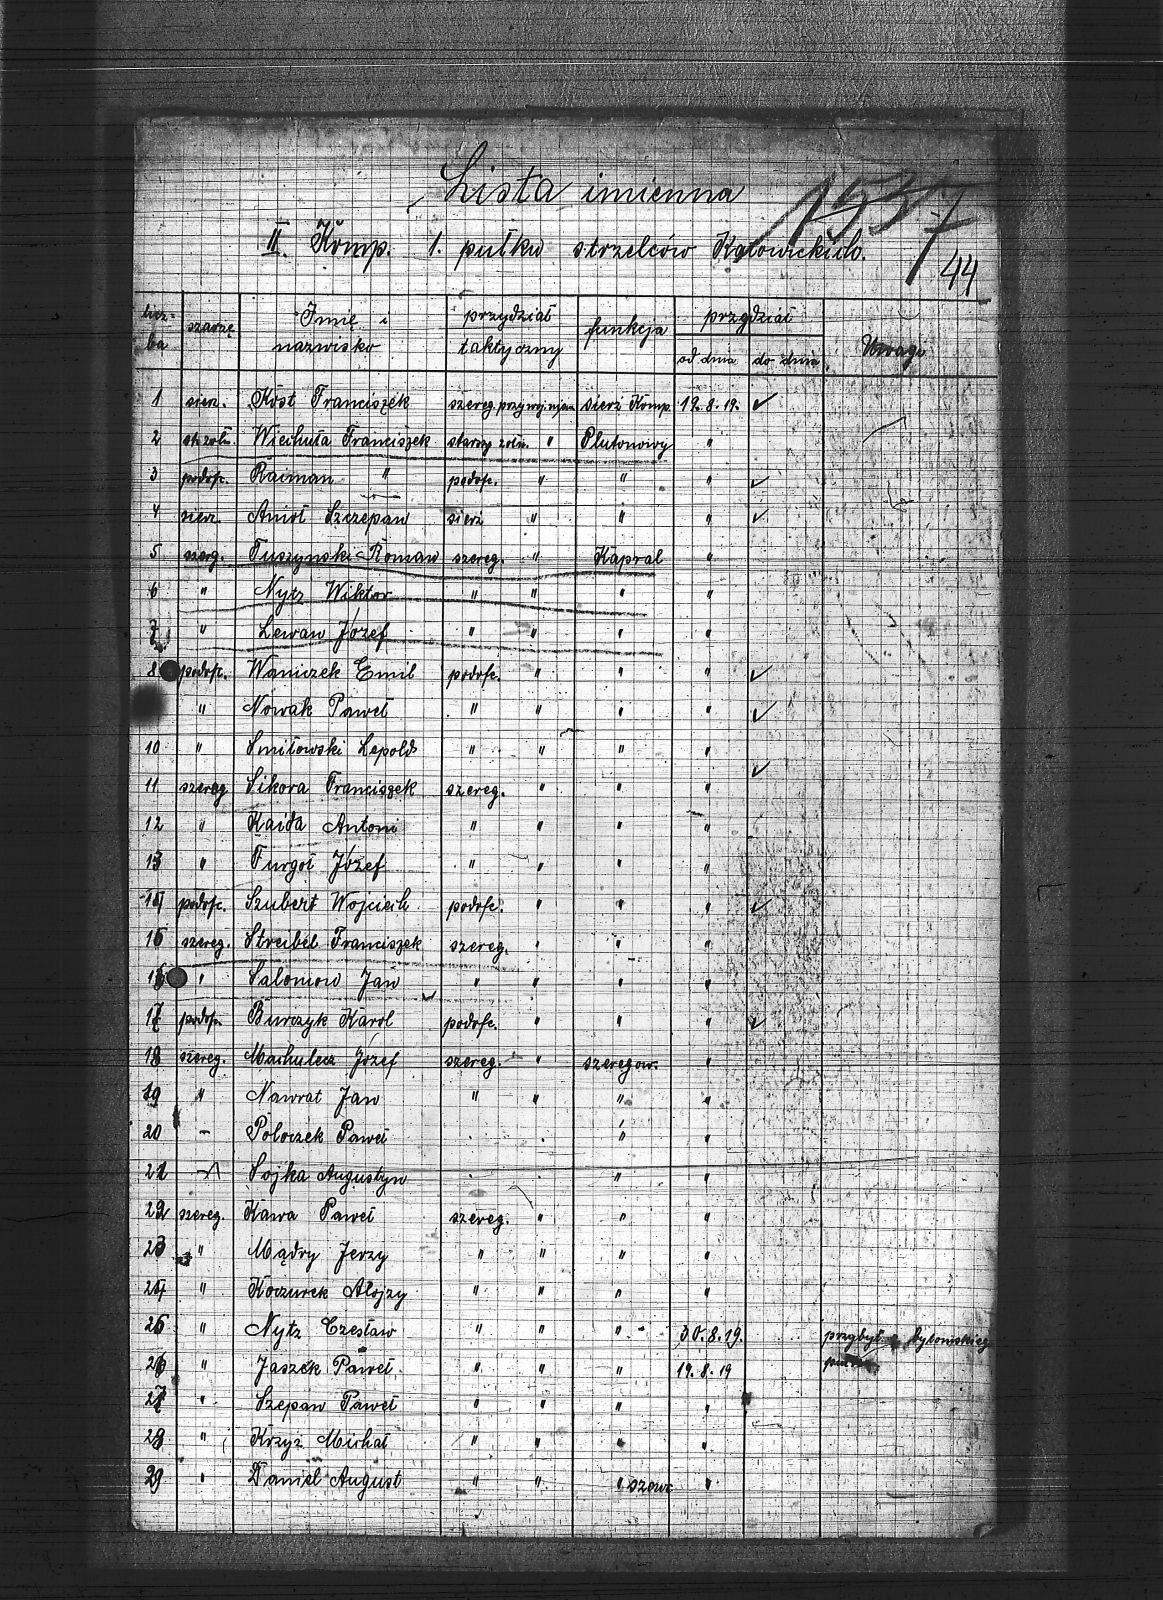 Lista imienna
1537
II. Komp. 1. pułku strzelców Katowickich.
44
licz-ba szarżę Imię i nazwisko przydział taktyczny funkcja przydział od dnia do dnia Uwagi
1 sierż. Kost Franciszek szereg. przy woj. sierż Komp. 19.8.19. ✓
2 st. żołn. Wiechuła Franciszek starszy żołn. " Plutonowy "
3 podofc. Raiman " podofc. " " " ✓
4 sierż. Anioł Szczepan sierż " " " ✓
5 szerg. Tuszynski Roman szereg. " Kapral "
6 " Nytz Wiktor " " " "
7 " Lewan Józef " " " "
8 podofc. Waniczek Emil podofc. " " " ✓
" Nowak Paweł " " " " ✓
10 " Smiłowski Lepold " " " "
11 szereg Sikora Franciszek szereg. " " " ✓
12 " Kaida Antoni " " " "
13 " Furgoł Józef " " " "
14 podofc. Szubert Wojciech podofc. " " " ✓
15 szereg. Streibel Franciszek szereg. " " "
16 " Salomon Jan " " " "
17 podofc. Burczyk Karol podofc. " " " ✓
18 szereg. Machulecz Józef szereg. " szeregow. "
19 " Nawrat Jan " " " "
20 - Poloczek Paweł . . " "
21 Sojka Augustyn . . " "
22 szereg. Kawa Paweł szereg. " " "
23 " Mądry Jerzy " " " "
24 " Koczurek Alojzy " " " "
25 " Nytz Czesław " " " 30.8.19. przybył bytomskieg
26 " Jaszek Paweł. " " " 19.8.19
27 " Szepan Paweł " " " "
28 " Krzyż Michał " " " "
29 " Daniel August " " " szewc "